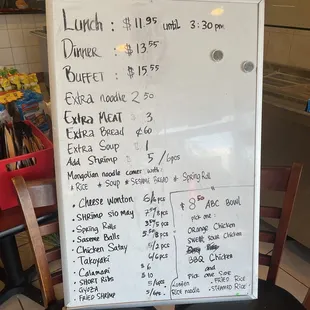 Lunch : $11.95 until 3:30 pm
Dinner : $13.55
Buffet : $15.55
Extra noodle 2.50
Extra MEAT $ 3
Extra Bread ¢60
Extra Soup 1
Add Shrimp 5 / 6pcs
Mongolian noodle comes with:
* Rice * Soup * Sesame Bread * Spring Roll
* Cheese wonton
* Shrimp sio may
* Spring Rolls
* Sesame Balls
* Chicken Satay
* Takoyaki
* Calamari $ 6
* Short Ribs $ 10
* Gyoza
* Fried Shrimp
$8.50 ABC Bowl
pick one:
Orange Chicken
Sweet Sour Chicken
BBQ Chicken
and
Pick one Side
- Fried Rice
Rice noodle - Steamed Rice